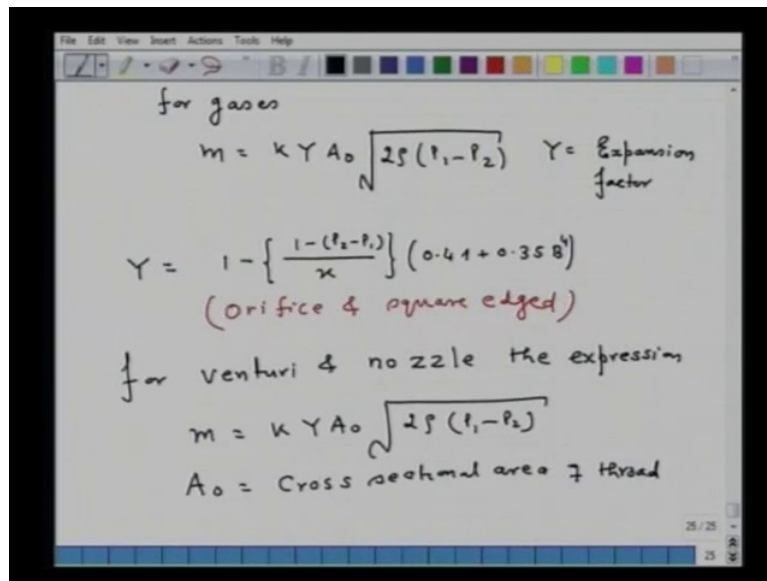 File Edit View Insert Actions Tools Help
for gases
m = K Y A₀ √2ρ(P₁-P₂) Y = Expansion
factor
Y = 1 - { 1-(P₂-P₁) / x } (0.41 + 0.35 B⁴)
(orifice & square edged)
for venturi & nozzle the expression
m = K Y A₀ √2ρ(P₁-P₂)
A₀ = Cross sectional area of thread
25 / 25
25